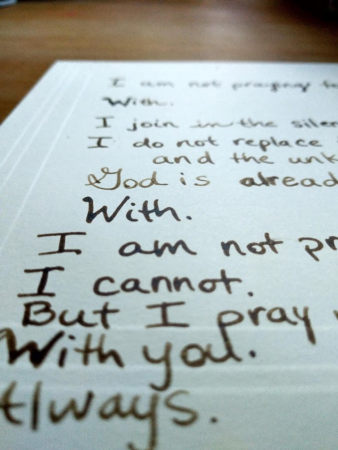 I am not praying fo
With.
I join in the silen
I do not replace
and the unk
God is alread
With.
I am not pr
I cannot.
But I pray
With you.
Always.